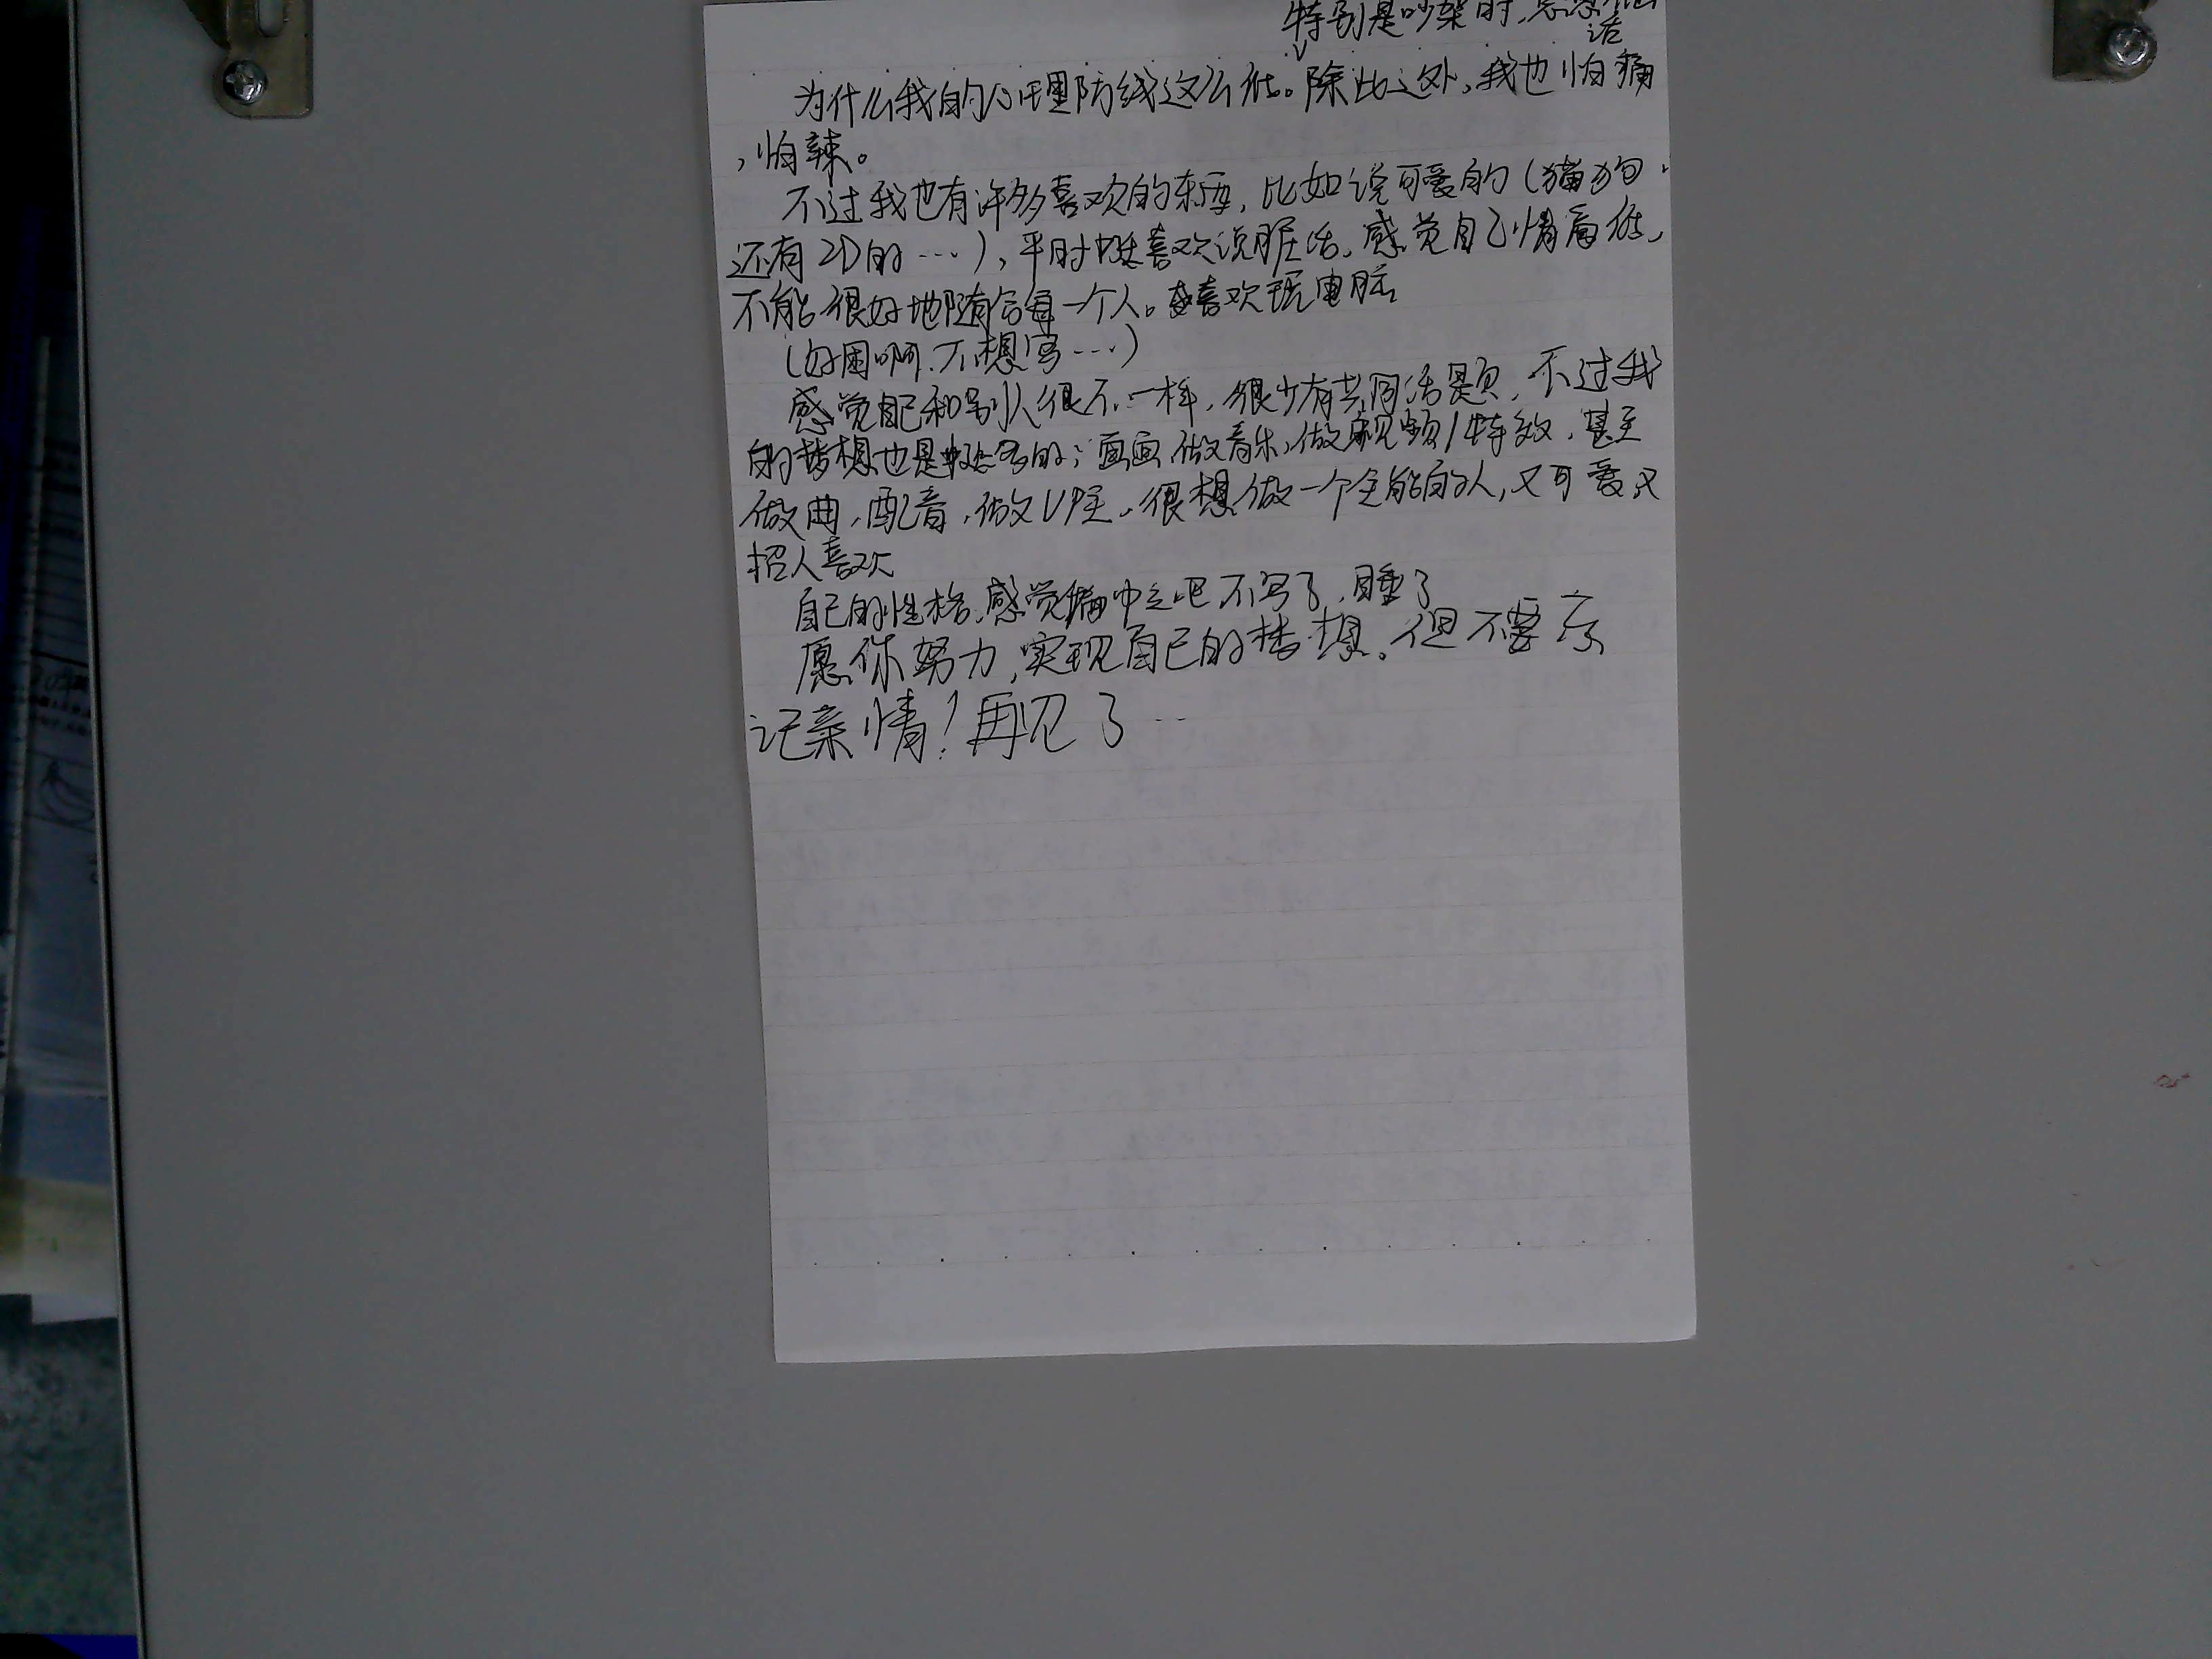 特别是吵架时,总想
话
为什么我的心理防线这么低。除此之外,我也怕痛
,怕辣。
不过我也有许多喜欢的东西,比如说可爱的(猫狗、
还有2D的…),平时挺喜欢说脏话,感觉自己情商低,
不能很好地随合每一个人。喜欢玩电脑
(好困啊.不想写…)
感觉自己和别人很不一样,很少有共同话题,不过我
的梦想也是挺多的;画画,做音乐,做视频/特效,甚至
做曲,配音,做UP主。很想做一个全能的人,又可爱又
招人喜欢
自己的性格,感觉偏中立吧 不写了,睡了
愿你努力,实现自己的梦想。但不要忘
记亲情!再见了…